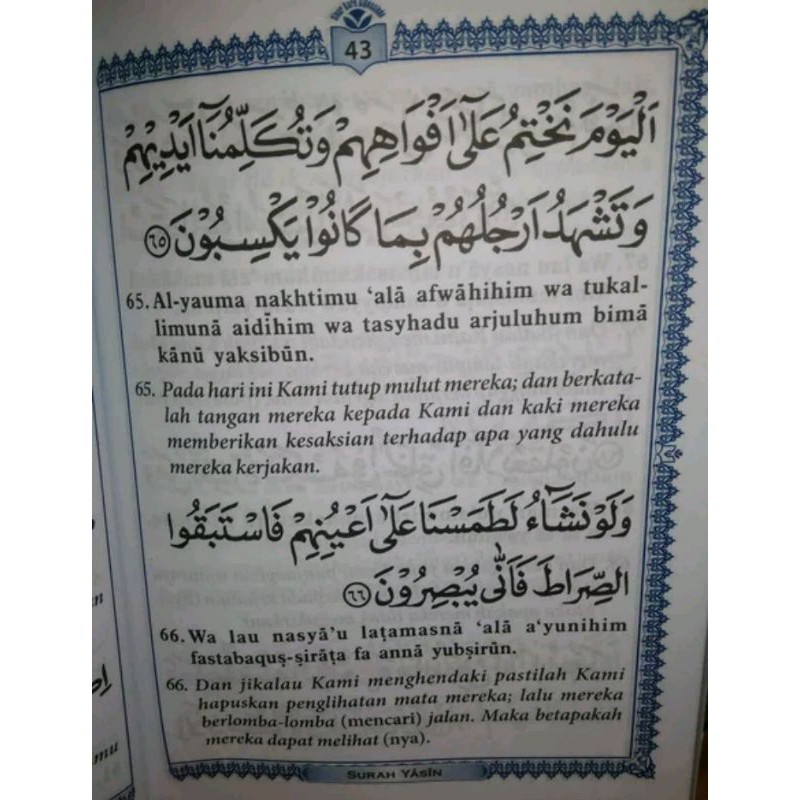 43
اَلْيَوْمَ نَخْتِمُ عَلٰٓى اَفْوَاهِهِمْ وَتُكَلِّمُنَآ اَيْدِيْهِمْ
وَتَشْهَدُ اَرْجُلُهُمْ بِمَا كَانُوْا يَكْسِبُوْنَ ٦٥
65. Al-yauma nakhtimu ‘alā afwāhihim wa tukal-
limunā aidīhim wa tasyhadu arjuluhum bimā
kānū yaksibūn.
65. Pada hari ini Kami tutup mulut mereka; dan berkata-
lah tangan mereka kepada Kami dan kaki mereka
memberikan kesaksian terhadap apa yang dahulu
mereka kerjakan.
وَلَوْ نَشَآءُ لَطَمَسْنَا عَلٰٓى اَعْيُنِهِمْ فَاسْتَبَقُوا
الصِّرَاطَ فَاَنّٰى يُبْصِرُوْنَ ٦٦
66. Wa lau nasyā’u laṭamasnā ‘alā a‘yunihim
fastabaquṣ-ṣirāṭa fa annā yubṣirūn.
66. Dan jikalau Kami menghendaki pastilah Kami
hapuskan penglihatan mata mereka; lalu mereka
berlomba-lomba (mencari) jalan. Maka betapakah
mereka dapat melihat (nya).
SURAH YĀSĪN